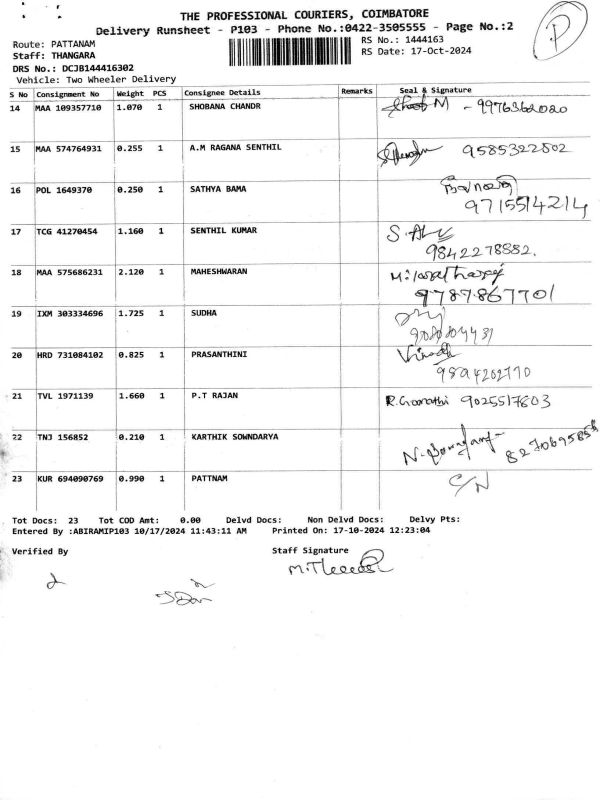 THE PROFESSIONAL COURIERS, COIMBATORE
Delivery Runsheet - P103 - Phone No.:0422-3505555 - Page No.:2
P
Route: PATTANAM
RS No.: 1444163
Staff: THANGARA
RS Date: 17-Oct-2024
DRS No.: DCJB144416302
Vehicle: Two Wheeler Delivery
S No Consignment No Weight PCS Consignee Details Remarks Seal & Signature
14 MAA 109357710 1.070 1 SHOBANA CHANDR M - 9976362020
15 MAA 574764931 0.255 1 A.M RAGANA SENTHIL 9585322802
16 POL 1649370 0.250 1 SATHYA BAMA
9715514214
17 TCG 41270454 1.160 1 SENTHIL KUMAR S.
9842278882.
18 MAA 575686231 2.120 1 MAHESHWARAN
9787867701
19 IXM 303334696 1.725 1 SUDHA
20 HRD 731084102 0.825 1 PRASANTHINI
9894202770
21 TVL 1971139 1.660 1 P.T RAJAN R. 9025517803
22 TNJ 156852 0.210 1 KARTHIK SOWNDARYA
23 KUR 694090769 0.990 1 PATTNAM C/N
Tot Docs: 23 Tot COD Amt: 0.00 Delvd Docs: Non Delvd Docs: Delvy Pts:
Entered By :ABIRAMIP103 10/17/2024 11:43:11 AM Printed On: 17-10-2024 12:23:04
Verified By Staff Signature